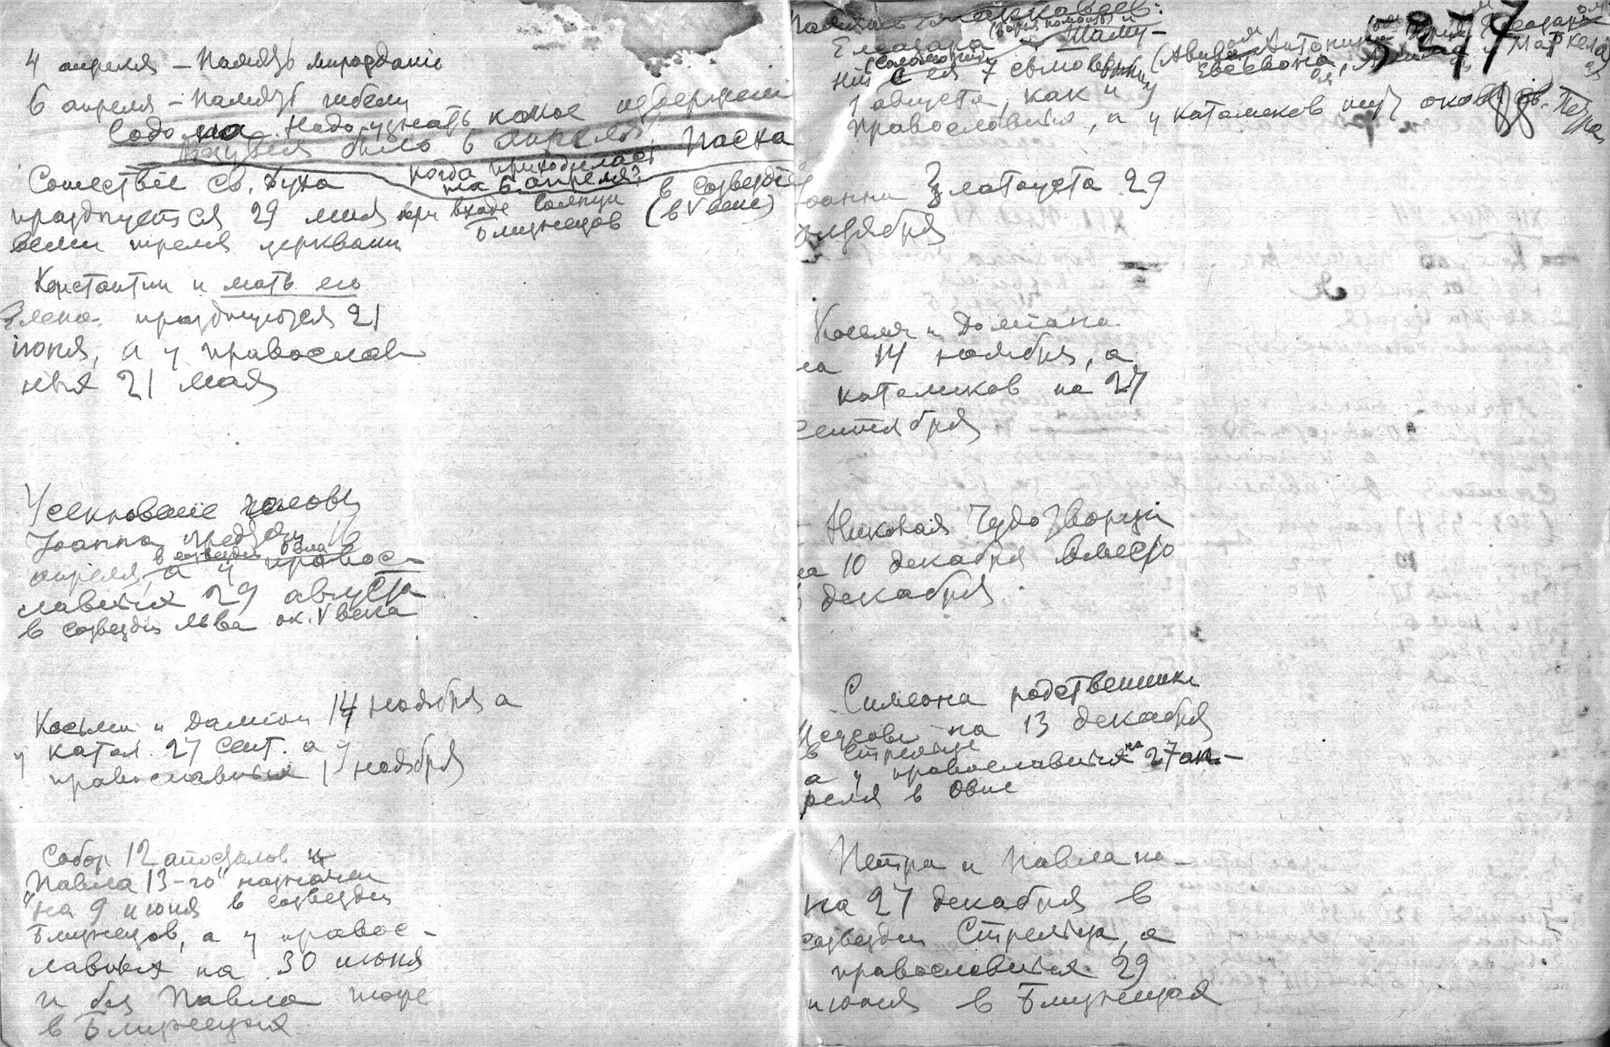 4 апреля – Память мироздания
6 апреля – Память гибели
Содома. Надо узнать какое извержение
Везувия было 6 апреля. Пасха
когда приходилась
на 6 апреля?
Сошествие св. Духа
празднуется 29 мая при входе Солнца в созвездие
Близнецов (в V веке)
всеми тремя церквами
Константин и мать его
Елена празднуются 21
июня, а у православ
ных 21 мая
Усекновение головы
Иоанна предтечи 16
в созвездии Овна
апреля, а у правос-
лавных 29 августа
в созвездии Льва ок. V века
Косьмы и Дамиан 14 ноября а
у катол. 27 сент. а у
православных 1 ноября
Собор 12 апостолов и
"Павла 13-го" назначен
на 9 июня в созвездии
Близнецов, а у правос-
лавных на 30 июня
и без Павла тоже
в Близнецах
5277
Елеазара
ний (Соломонии) с ея 7 сыновьями
1 августа, как и у
православных, а у католиков оков св. Петра
Иоанна Златоуста 29
Косьмы и Домиана
на 14 ноября, а
католиков на 27
сентября
Николая Чудотворца
на 10 декабря вместо
декабря
Симеона родственника
на 13 декабря
в Стрельце
а у православных на 27 ап-
реля в Овне
Петра и Павла на
на 27 декабря в
созвездии Стрельца, а
православных 29
июня в Близнецах